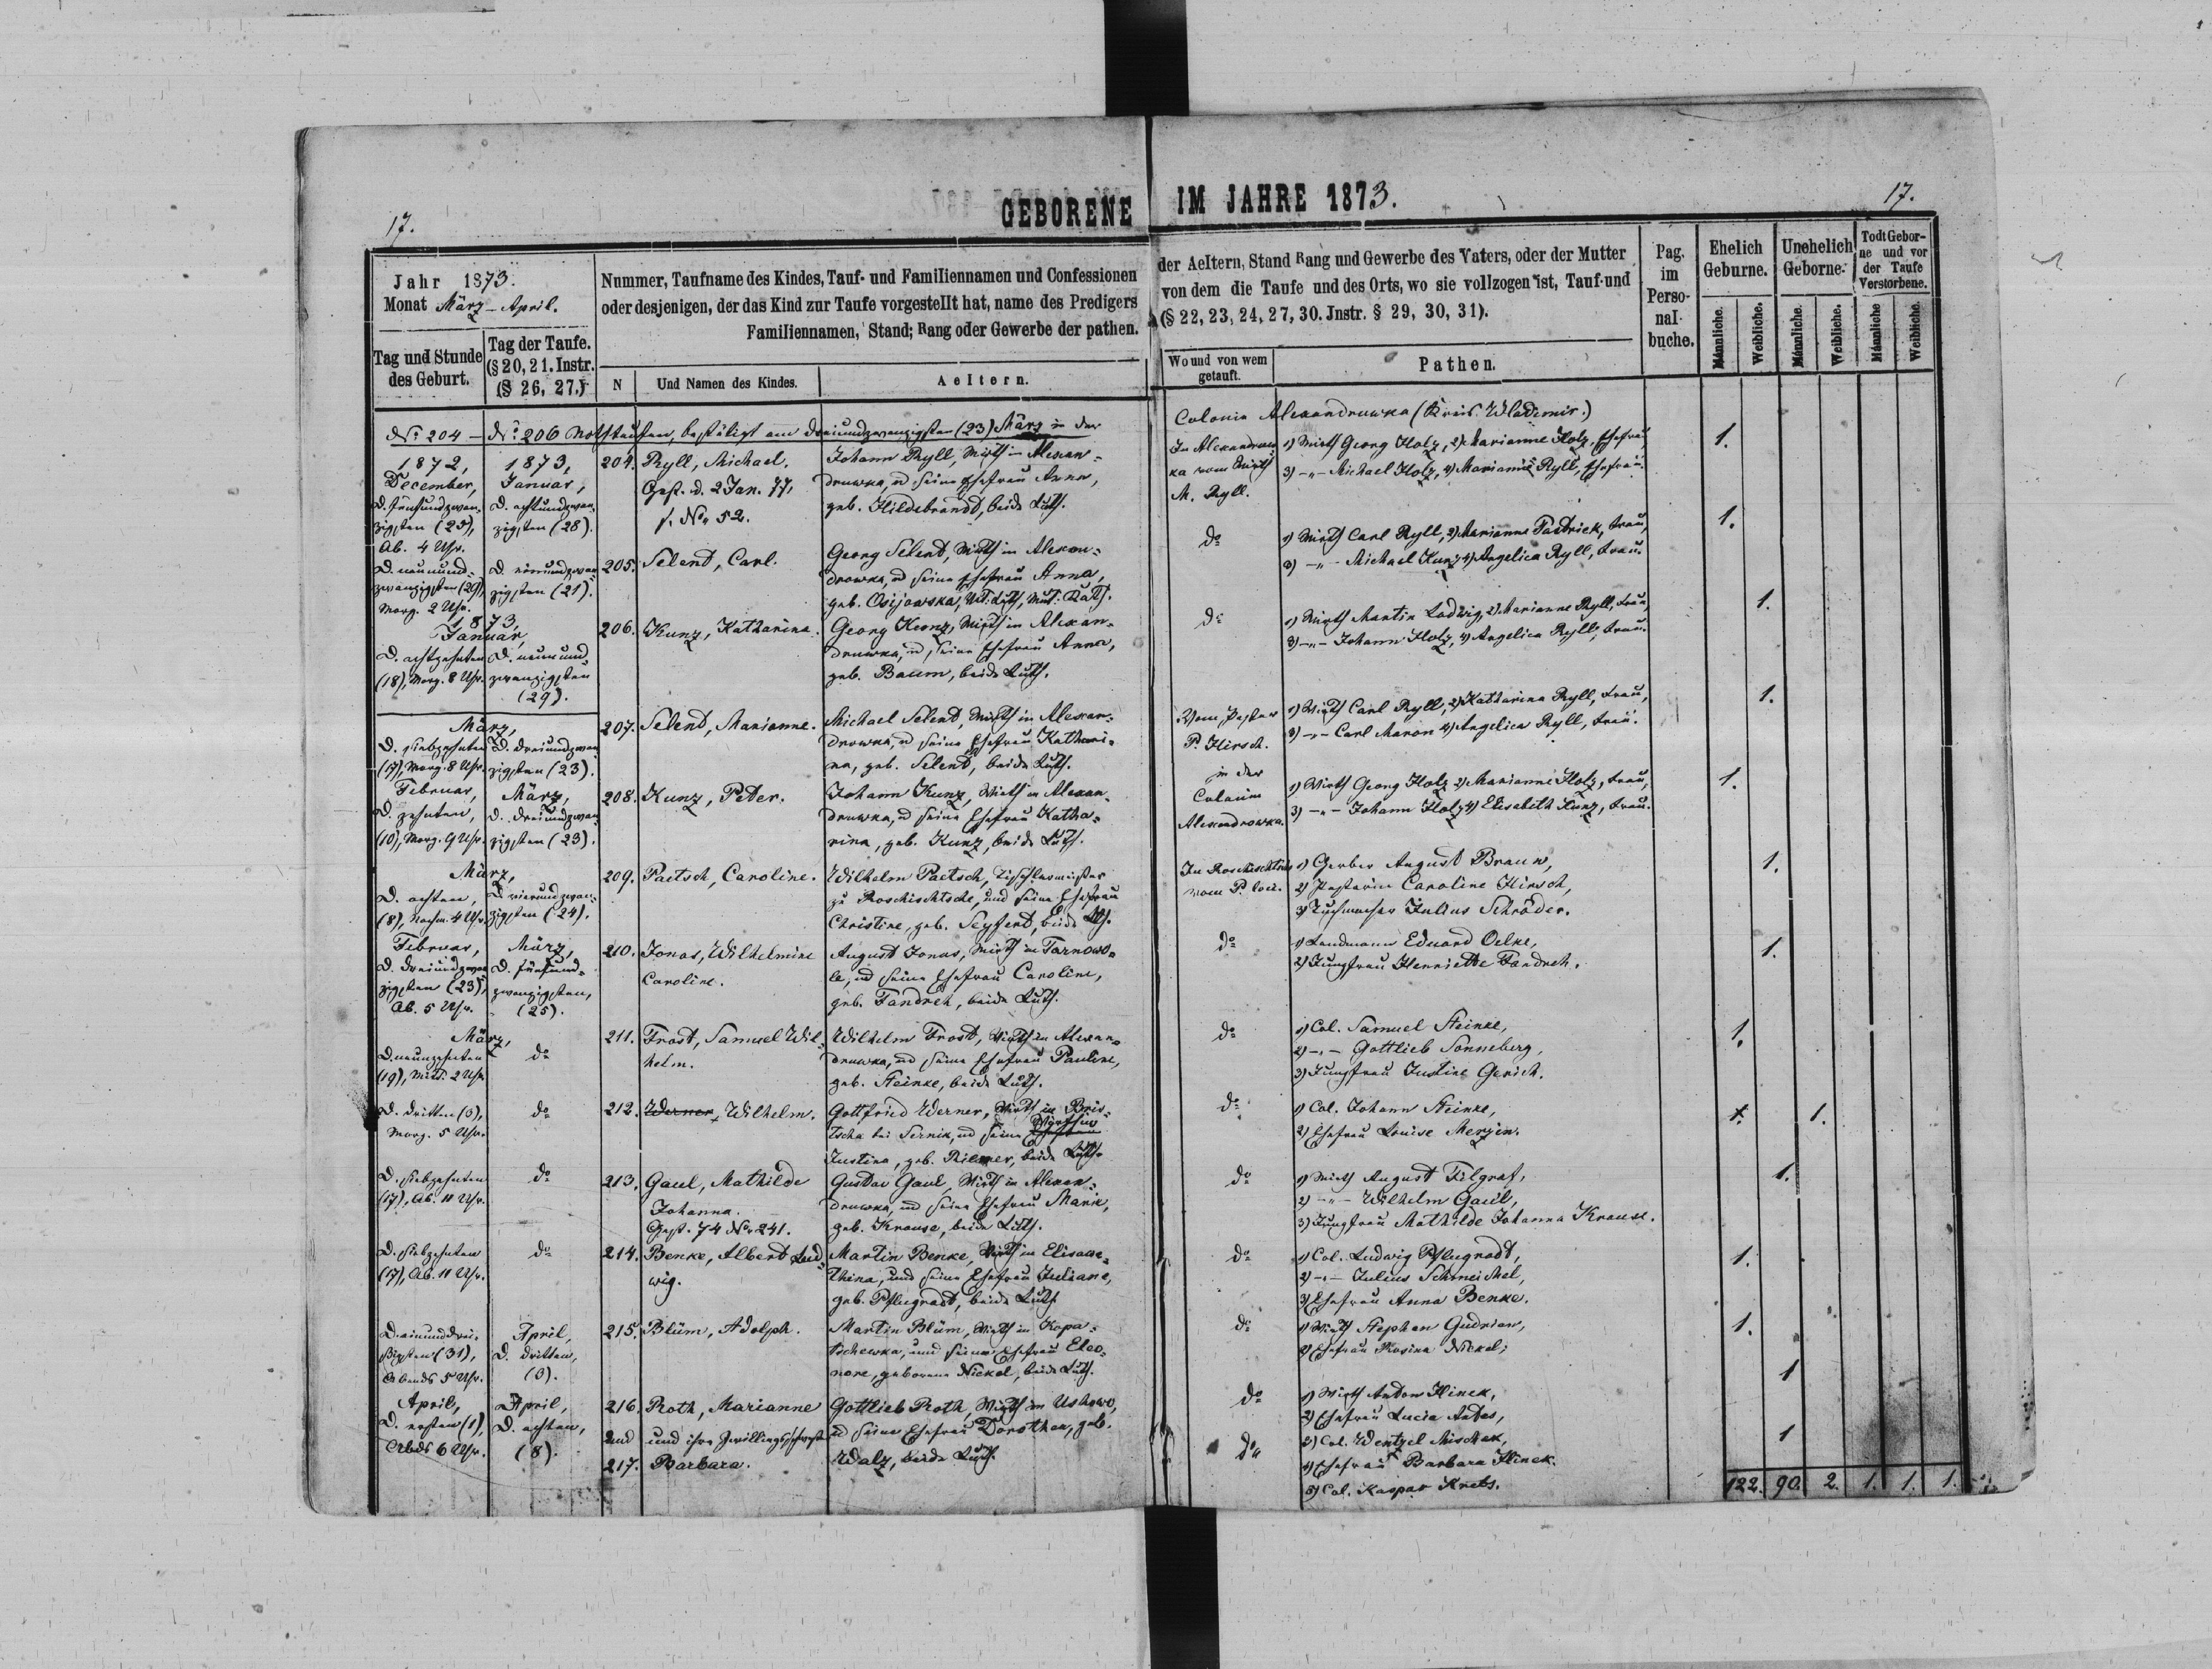 GEBORENE IM JAHRE 1873.
17.
17.
Jahr 1873.
Monat März - April.
Tag und Stunde des Geburt.
Tag der Taufe. (§ 20, 21. Instr. (§ 26, 27.)
Nummer, Taufname des Kindes, Tauf- und Familiennamen und Confessionen
oder desjenigen, der das Kind zur Taufe vorgestellt hat, name des Predigers
Familiennamen, Stand; Rang oder Gewerbe der pathen.
N
Und Namen des Kindes.
Aeltern.
der Aeltern, Stand Rang und Gewerbe des Vaters, oder der Mutter
von dem die Taufe und des Orts, wo sie vollzogen ist, Tauf-und
(§ 22, 23, 24, 27, 30. Jnstr. § 29, 30, 31).
Wo und von wem getauft.
Pathen.
Pag. im Perso- nal- buche.
Ehelich Geburne.
Unehelich Geborne.
Todt Gebor- ne und vor der Taufe Verstorbene.
Männliche. Weibliche. Männliche. Weibliche. Männliche Weibliche.
No 204 - No 206 Nothtaufen, bestätigt am dreiundzwanzigsten (23) März in der
Colonie Alexandruwka (Kreis Wladimir.)
1872,
December,
D. fünfundzwan-
zigsten (25),
Ab. 4 Uhr.
1873,
Januar,
D. achtundzwan-
zigsten (28).
204. Ryll, Michael.
Gest. d. 2 Jan. 77,
f. No. 52.
Johann Ryll, Wirth in Alexan-
druwka, u seine Ehefrau Anna,
geb. Hildebrandt, beide Luth.
In Alexandruw-
ka vom Wirth
M. Ryll.
1) Wirth Georg Holz, 2) Marianne Holz, Ehefrau,
3) -"- Michael Holz, 4) Marianne Ryll, Ehefrau.
1.
D. neunund-
zwanzigsten (29),
Morg. 2 Uhr.
D. einundzwan-
zigsten (21).
205. Selend, Carl.
Georg Selend, Wirth in Alexan-
drowka, u seine Ehefrau Anna,
geb. Osijowska, Vat. Luth, Mut. Kath.
do
1) Wirth Carl Ryll, 2) Marianne Fastrick, Frau,
3) -"- Michael Kunz 4) Angelica Ryll, Frau.
1.
1873,
Januar,
D. achtzehnten
(18), Morg. 8 Uhr.
D. neunund
zwanzigsten
(29).
206. Kunz, Katharina.
Georg Kunz, Wirth in Alexan-
druwka, u seine Ehefrau Anna,
geb. Baum, beide Luth.
do
1) Wirth Martin Ladwig, 2) Marianne Ryll, Frau,
3) -"- Johann Holz, 4) Angelica Ryll, Frau.
1.
März,
D. siebzehnten
(17), Morg. 8 Uhr.
D. dreiundzwan
zigsten (23).
207. Selend, Marianne.
Michael Selend, Wirth in Alexan-
drowka, u seine Ehefrau Kathari-
na, geb. Selend, beide Luth.
Vom Pastor
P. Hirsch.
in der
Colonie
Alexandrowka.
1) Wirth Carl Ryll, 2) Katharina Ryll, Frau,
3) -"- Carl Maron 4) Angelica Ryll, Frau.
1.
Februar,
D. zehnten,
(10), Morg. 9 Uhr.
März,
D. dreiundzwan
zigsten (23).
208. Kunz, Peter.
Johann Kunz, Wirth in Alexan-
druwka, u seine Ehefrau Katha-
rina, geb. Kunz, beide Luth.
1) Wirth Georg Holz 2) Marianne Holz, Frau,
3) -"- Johann Holz 4) Elisabeth Kunz, Frau.
1.
März,
D. achten,
(8), Nachm. 4 Uhr.
D. vierundzwan-
zigsten (24).
209. Paetsch, Caroline.
Wilhelm Paetsch, Tischlermeister
zu Roschischtsche, und seine Ehefrau
Christine, geb. Seyferd, beide Luth.
In Roschischtsche
vom P. loci.
1) Gerber August Braun,
2) Pastorin Caroline Hirsch,
3) Tuchmacher Julius Schröder.
1.
Februar,
D. dreiundzwan
zigsten (23),
Ab. 5 Uhr.
März,
D. fünfund-
zwanzigsten,
(25).
210. Jonas, Wilhelmine
Caroline.
August Jonas, Wirth in Tarnowo-
le, u seine Ehefrau Caroline,
geb. Fandreh, beide Luth.
do
1) Landmann Eduard Oelke,
2) Jungfrau Henriette Fandreh.
1.
März,
D. neunzehnten
(19), Mitt. 2 Uhr
do
211. Frost, Samuel Wil-
helm.
Wilhelm Frost, Wirth in Alexan-
druwka, und seine Ehefrau Pauline,
geb. Steinke, beide Luth.
do
1) Col. Samuel Steinke,
2) -"- Gottlieb Sonneberg,
3) Jungfrau Justine Gerich.
1.
D. dritten (3),
Morg. 5 Uhr.
do
212. Werner, Wilhelm.
Gottfried Werner, Wirth in Bris-
tsche bei Sernik, und seine Ehefrau Wirthin
Justina, geb. beide Luth.
do
1) Col. Johann Steinke,
2) Ehefrau Louise Merzin.
1. 1.
D. siebzehnten
(17), Ab. 11 Uhr.
do
213. Gaul, Mathilde
Johanna.
Gest. 74 No. 241.
Gustav Gaul, Wirth in Alexan-
druwka, und seine Ehefrau Marie,
geb. Krause, beide Luth.
do
1) Wirth August Filgraf,
2) -"- Wilhelm Gaul,
3) Jungfrau Mathilde Johanna Krause.
1.
D. siebzehnten
(17), Ab. 11 Uhr.
do
214. Benke, Albert Lud-
wig.
Martin Benke, Wirth in Elisawe-
thina, und seine Ehefrau Juliane,
geb. Pflugradt, beide Luth.
do
1) Col. Ludwig Pflugradt,
2) -"- Julius Schmeichel,
3) Ehefrau Anna Benke.
1.
D. einunddrei-
ßigsten (31),
Abends 5 Uhr.
April,
D. dritten,
(3).
215. Blüm, Adolph.
Martin Blüm, Wirth in Kopa-
tschewka, und seine Ehefrau Eleo-
nore, geborene Nickel, beide Luth.
do
1) Wirth Stephan Gudrian,
2) Ehefrau Rosina Nickel;
1.
April,
D. ersten (1),
Abds 6 Uhr.
April,
D. achten,
(8).
216. Roth, Marianne
und und ihre Zwillingsschwester
217. Barbara.
Gottlieb Roth, Wirth in Ushowo,
u seine Ehefrau Dorothea, geb.
Walz, beide Luth.
do
do
1) Wirth Anton Hinek,
2) Ehefrau Lucia Antes,
3) Col. Wentzel Mischek,
4) Ehefrau Barbara Hinek.
5) Col. Kaspar Krebs.
1
1
122. 90. 2. 1. 1. 1.